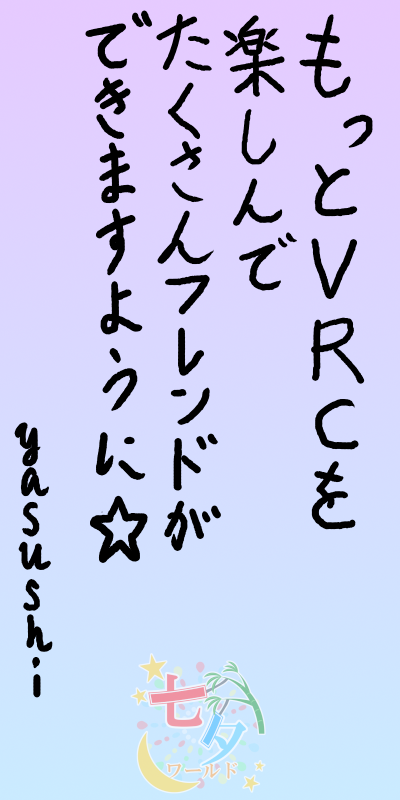 もっとVRCを
楽しんで
たくさんフレンドが
できますように☆
yasushi
七夕
ワールド